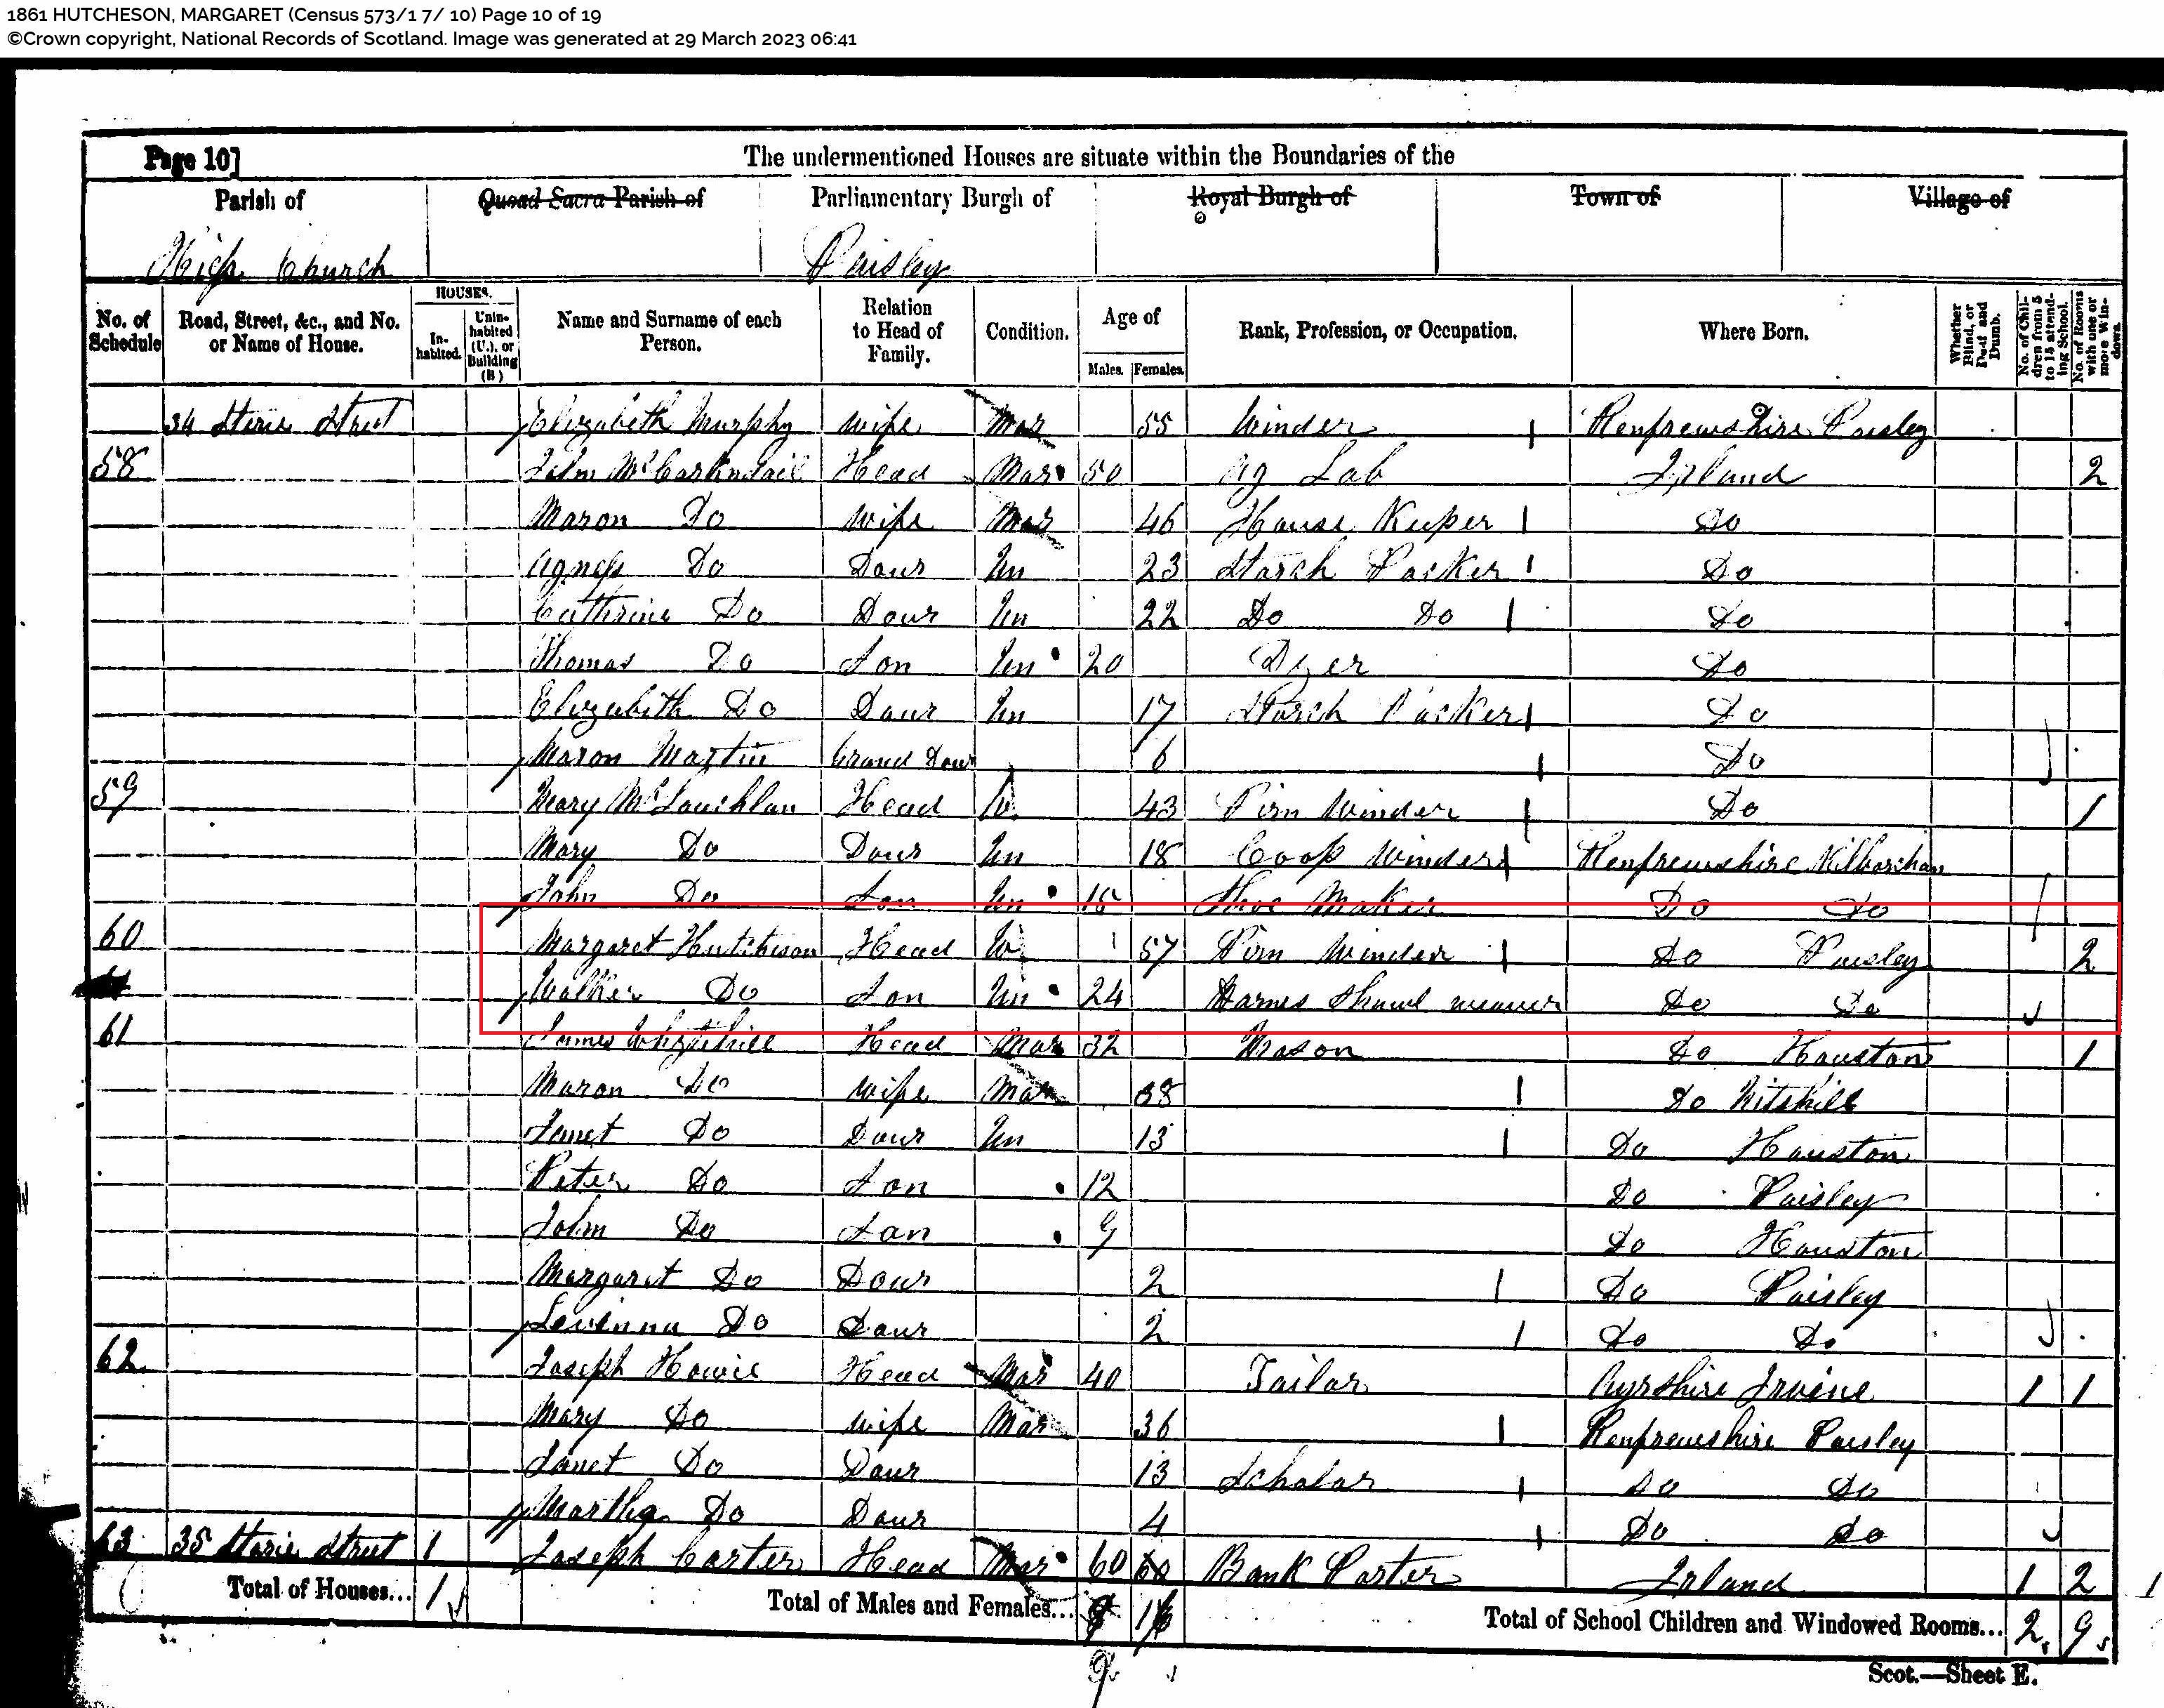 1861 HUTCHESON, MARGARET (Census 573/1 7/ 10) Page 10 of 19
©Crown copyright, National Records of Scotland. Image was generated at 29 March 2023 06:41
Page 10]
The undermentioned Houses are situate within the Boundaries of the
Parish of Quoad Sacra Parish of Parliamentary Burgh of Royal Burgh of Town of Village of
High Church Paisley
No. of Schedule Road, Street, &c., and No. or Name of House. HOUSES. In-habited. Unin-habited (U.), or Building (B) Name and Surname of each Person. Relation to Head of Family. Condition. Age of Males. Females. Rank, Profession, or Occupation. Where Born. Whether Blind, or Deaf and Dumb. No. of Chil-dren from 5 to 15 attend-ing School. No. of Rooms with one or more Win-dows.
34 Storie Street Elizabeth Murphy wife Mar 55 Winder Renfrewshire Paisley
58 John Head Mar 50 Ag Lab Irland 2
Maron Do wife Mar 46 House Keeper Do
Agness Do Daur Un 23 Starch Packer Do
Cathrine Do Daur Un 22 Do Do Do
Thomas Do Son Un 20 Dyer Do
Elizabith Do Daur Un 17 Starch Packer Do
Maron Martin Grand Daur 6 Do
59 Mary McLauchlan Head W 43 Pirn Winder Do 1
Mary Do Daur Un 18 Coop Winder Renfrewshire Kilbarchan
John Do Son Un Shoe Maker Do Do
60 Margaret Hutchison Head W 57 Pirn Winder Do Paisley 2
Walker Do Son Un 24 Harnes Shawl weaver Do Do
61 James Whitehill Head Mar 32 Mason Do Houston 1
Maron Do wife Mar 38 Do Nitshill
Janet Do Daur Un 13 Do Houston
Peter Do Son 12 Do Paisley
John Do Son 9 Do Houston
Margaret Do Daur 2 Do Paisley
Levinna Do Daur 2 Do Do
62 Joseph Howie Head Mar 40 Tailor Ayrshire Irvine 1 1
Mary Do wife Mar 36 Renfrewshire Paisley
Janet Do Daur 13 Scholar Do Do
Martha Do Daur 4 Do Do
63 35 Storie Street 1 Joseph Carter Head Mar 60 60 Bank Porter Irland 1 2
Total of Houses... 1 Total of Males and Females... Total of School Children and Windowed Rooms... 2 9
9
Scot.—Sheet E.